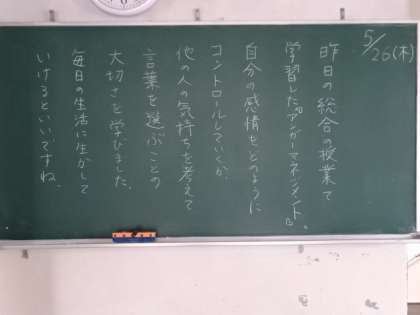 5/26(木)
昨日の総合の授業で
学習した『アンガーマネジメント』。
自分の感情をどのように
コントロールしていくか、
他の人の気持ちを考えて
言葉を選ぶことの
大切さを学びました。
毎日の生活に生かして
いけるといいですね。